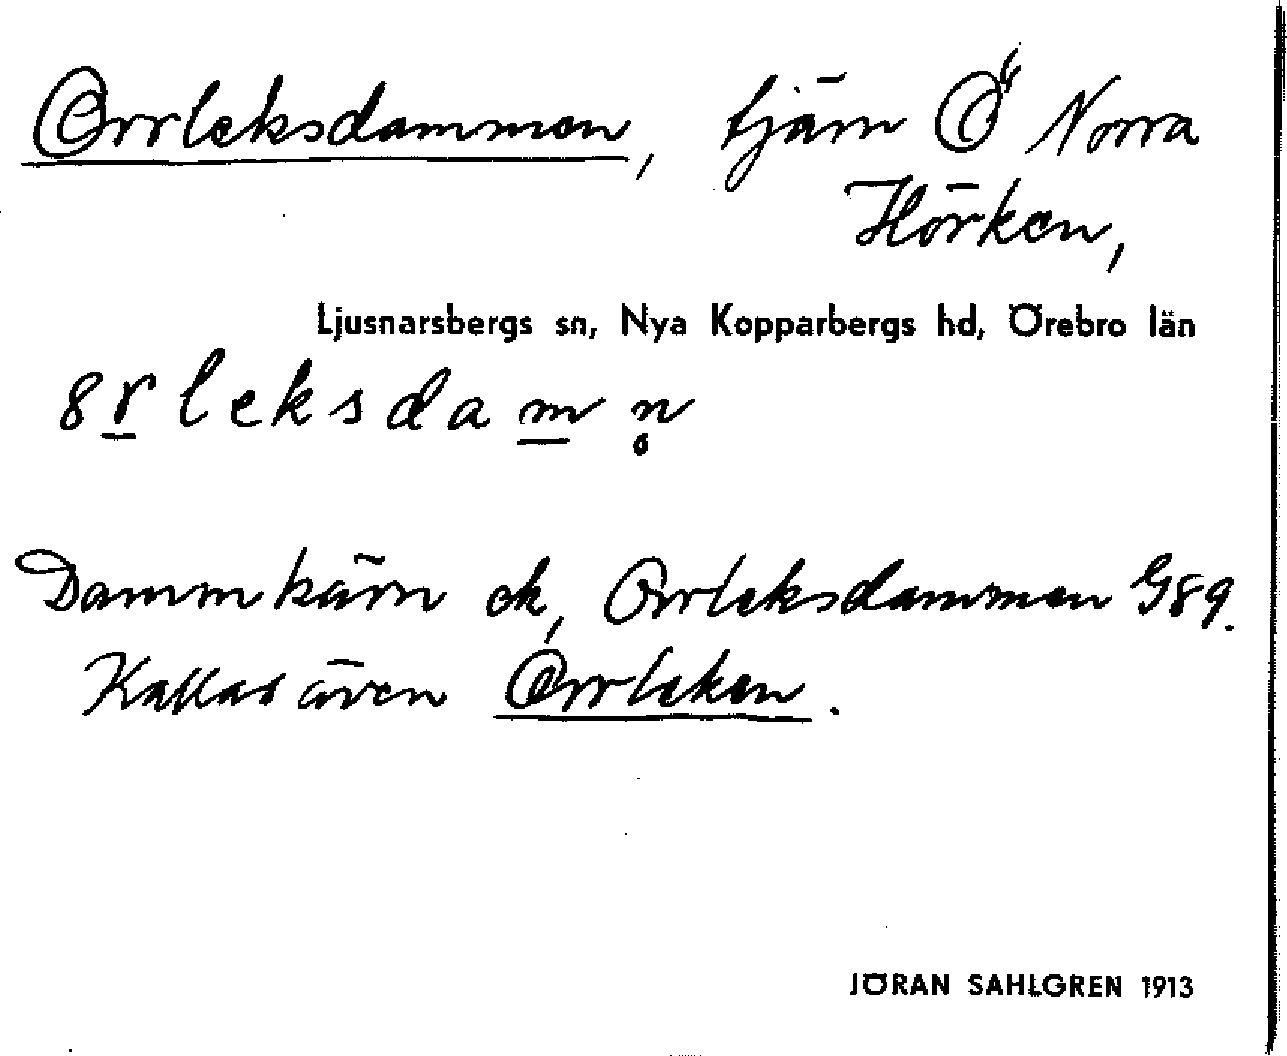 Orrleksdammen, tjärn Ö Norra
Hörken,
Ljusnarsbergs sn, Nya Kopparbergs hd, Örebro län
8r leksdam n̥
Dammkärn ek, Orrleksdammen G89.
Kallas även Orrleken.
JÖRAN SAHLGREN 1913